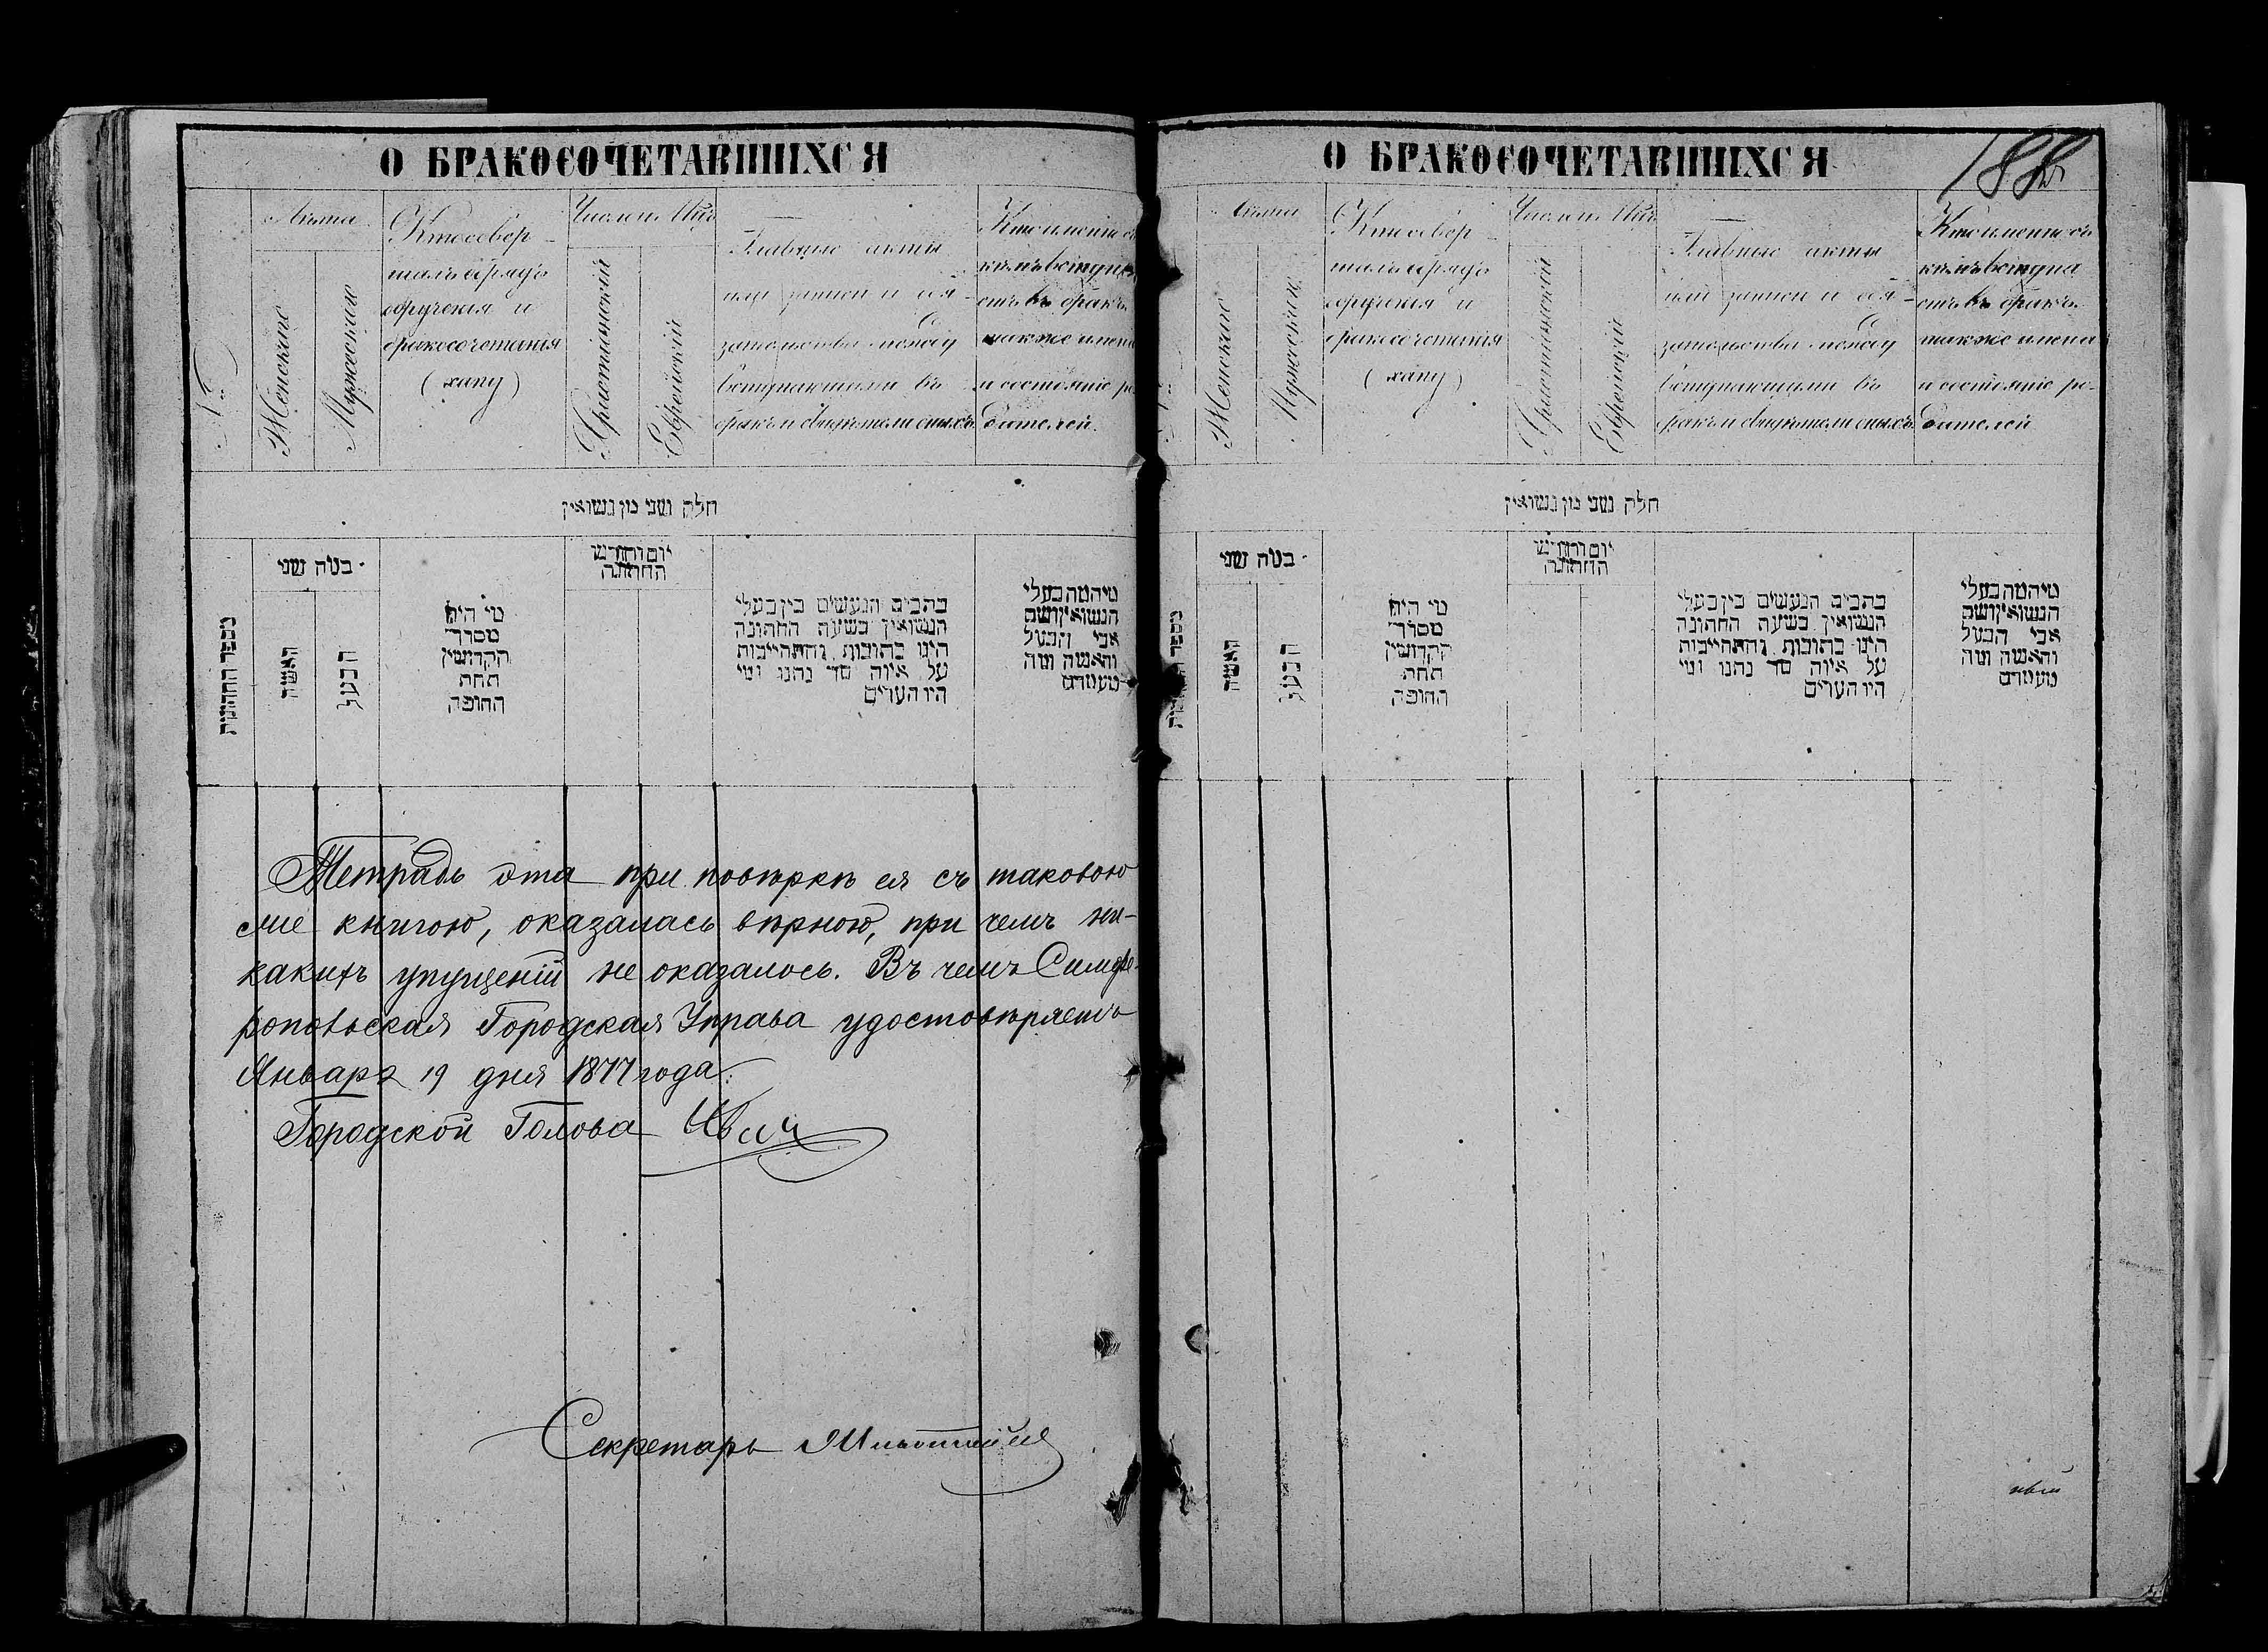 О БРАКОСОЧЕТАВШИХСЯ
№
Лѣта
Женскіе
Мужескіе
Кто совер-
шалъ обрядъ
обрученія и
бракосочетанія
(хупу)
Число и
Христіанскій
Еврейскій
Главные акты
или записи и обя-
зательства между
вступающими въ
бракъ и свидѣтели оныхъ
Кто именно съ
кѣмъ вступа
етъ въ бракъ
также имена
и состояніе ро
дителей.
חלק שני מן נשואין
מספר החתונות
כמה שני
האשה
הבעל
מי היה
מסדר
הקדושין
תחת
החופה
יום וחודש
החתונה
כתבים הנעשים בין בעלי
הנשואין בשעת החתונה
היינו כתובות והתחייבות
על איזה סך נתנו ומי
היו העדים
מיהמה בעלי
הנשואין ושם
אבי הבעל
והאשה ומה
מעמדם
Тетрадь эта при повѣркѣ ея съ таковою
же книгою, оказалась вѣрною, при чемъ ни-
какихъ упущеній не оказалось. Въ чемъ Симфе-
ропольская Городская Управа удостовѣряетъ
Января 19 дня 1877 года.
Городской Голова
Секретарь
О БРАКОСОЧЕТАВШИХСЯ
188
Лѣта
Женскіе
Мужескіе
Кто совер
шалъ обрядъ
обрученія и
бракосочетанія
(хупу)
Число и
Христіанскій
Еврейскій
Главные акты
или записи и обя-
зательства между
вступающими въ
бракъ и свидѣтели оныхъ
Кто именно съ
кѣмъ вступа
етъ въ бракъ
также имена
и состояніе ро-
дителей
חלק שני מן נשואין
כמה שני
האשה
הבעל
מי היה
מסדר
הקדושין
תחת
החופה
יום וחודש
החתונה
כתבים הנעשים בין בעלי
הנשואין בשעת החתונה
היינו כתובות והתחייבות
על איזה סך נתנו ומי
היו העדים
מיהמה בעלי
הנשואין ושם
אבי הבעל
והאשה ומה
מעמדם